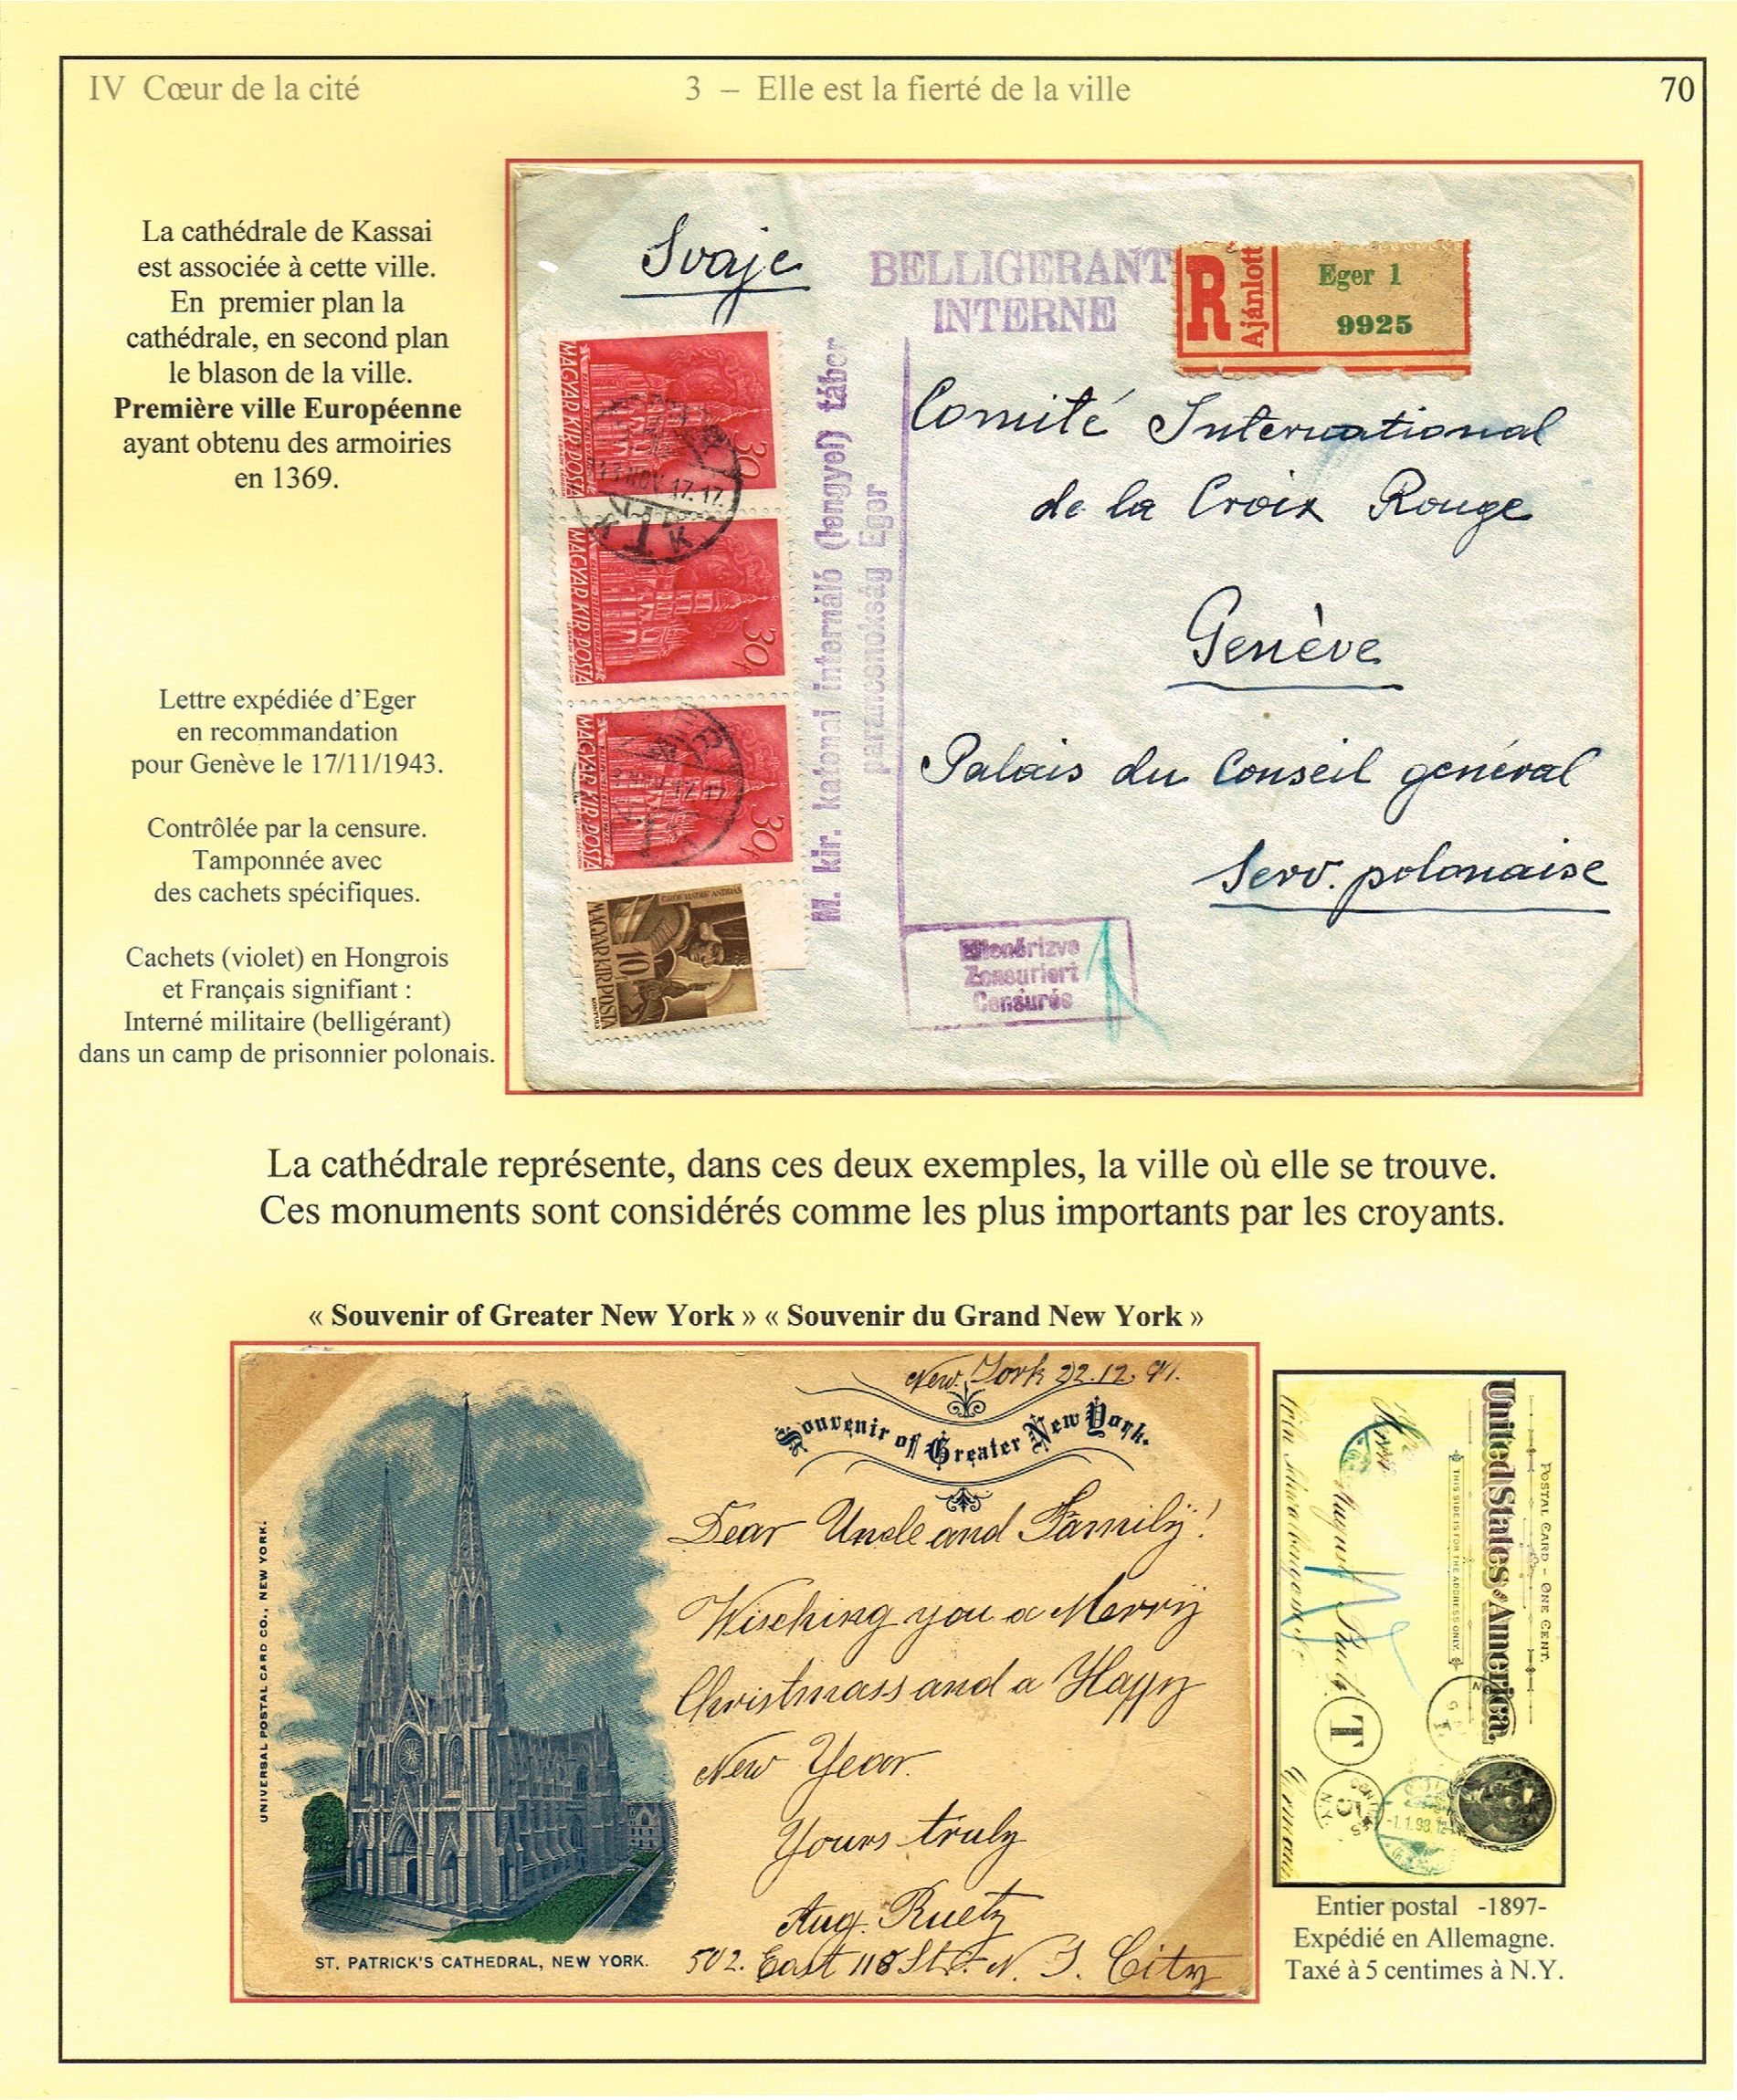 IV Cœur de la cité
3 – Elle est la fierté de la ville
70
La cathédrale de Kassai
est associée à cette ville.
En premier plan la
cathédrale, en second plan
le blason de la ville.
Première ville Européenne
ayant obtenu des armoiries
en 1369.
Lettre expédiée d’Eger
en recommandation
pour Genève le 17/11/1943.
Contrôlée par la censure.
Tamponnée avec
des cachets spécifiques.
Cachets (violet) en Hongrois
et Français signifiant :
Interné militaire (belligérant)
dans un camp de prisonnier polonais.
Svaje
BELLIGERANT
INTERNE
R Ajánlott
Eger 1
9925
MAGYAR KIR. POSTA
30f
MAGYAR KIR. POSTA
30f
MAGYAR KIR. POSTA
30f
MAGYAR KIR. POSTA
10f
M. kir. katonai internáló (lengyel) tábor
parancsnokság Eger
Comité International
de la Croix Rouge
Genève
Palais du Conseil général
Serv. polonaise
Ellenőrizve
Zensuriert
Censurée
La cathédrale représente, dans ces deux exemples, la ville où elle se trouve.
Ces monuments sont considérés comme les plus importants par les croyants.
« Souvenir of Greater New York » « Souvenir du Grand New York »
New York 22.12.97.
Souvenir of Greater New York.
Dear Uncle and Family!
Wisching you a Merry
Christmass and a Happy
New Year.
Yours truly
Aug. Ruetz
502. East 118 Str. N. Y. City
UNIVERSAL POSTAL CARD CO., NEW YORK.
ST. PATRICK'S CATHEDRAL, NEW YORK.
POSTAL CARD – ONE CENT.
United States of America
THIS SIDE IS FOR THE ADDRESS ONLY.
T
5
N.Y.
-1.1.98.
Entier postal -1897-
Expédié en Allemagne.
Taxé à 5 centimes à N.Y.